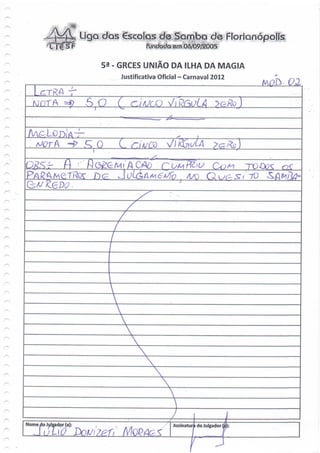 Liga das Escolas de Samba de Florianópolis
LIESF
fundada em 04/09/2005
5ª - GRCES UNIÃO DA ILHA DA MAGIA
Justificativa Oficial – Carnaval 2012
MOD. 02
LETRA :-
NOTA ⇒ 5,0 ( CINCO VÍRGULA ZERO)
MELODIA :-
NOTA ⇒ 5,0 ( CINCO VÍRGULA ZERO)
OBS:- A AGREMIAÇÃO CUMPRIU COM TODOS OS
PARÂMETROS DE JULGAMENTO, NO QUESITO SAMBA-
ENREDO.
Nome do Julgador (a): Assinatura do Julgador (a):
JULIO DONIZETI MORAES